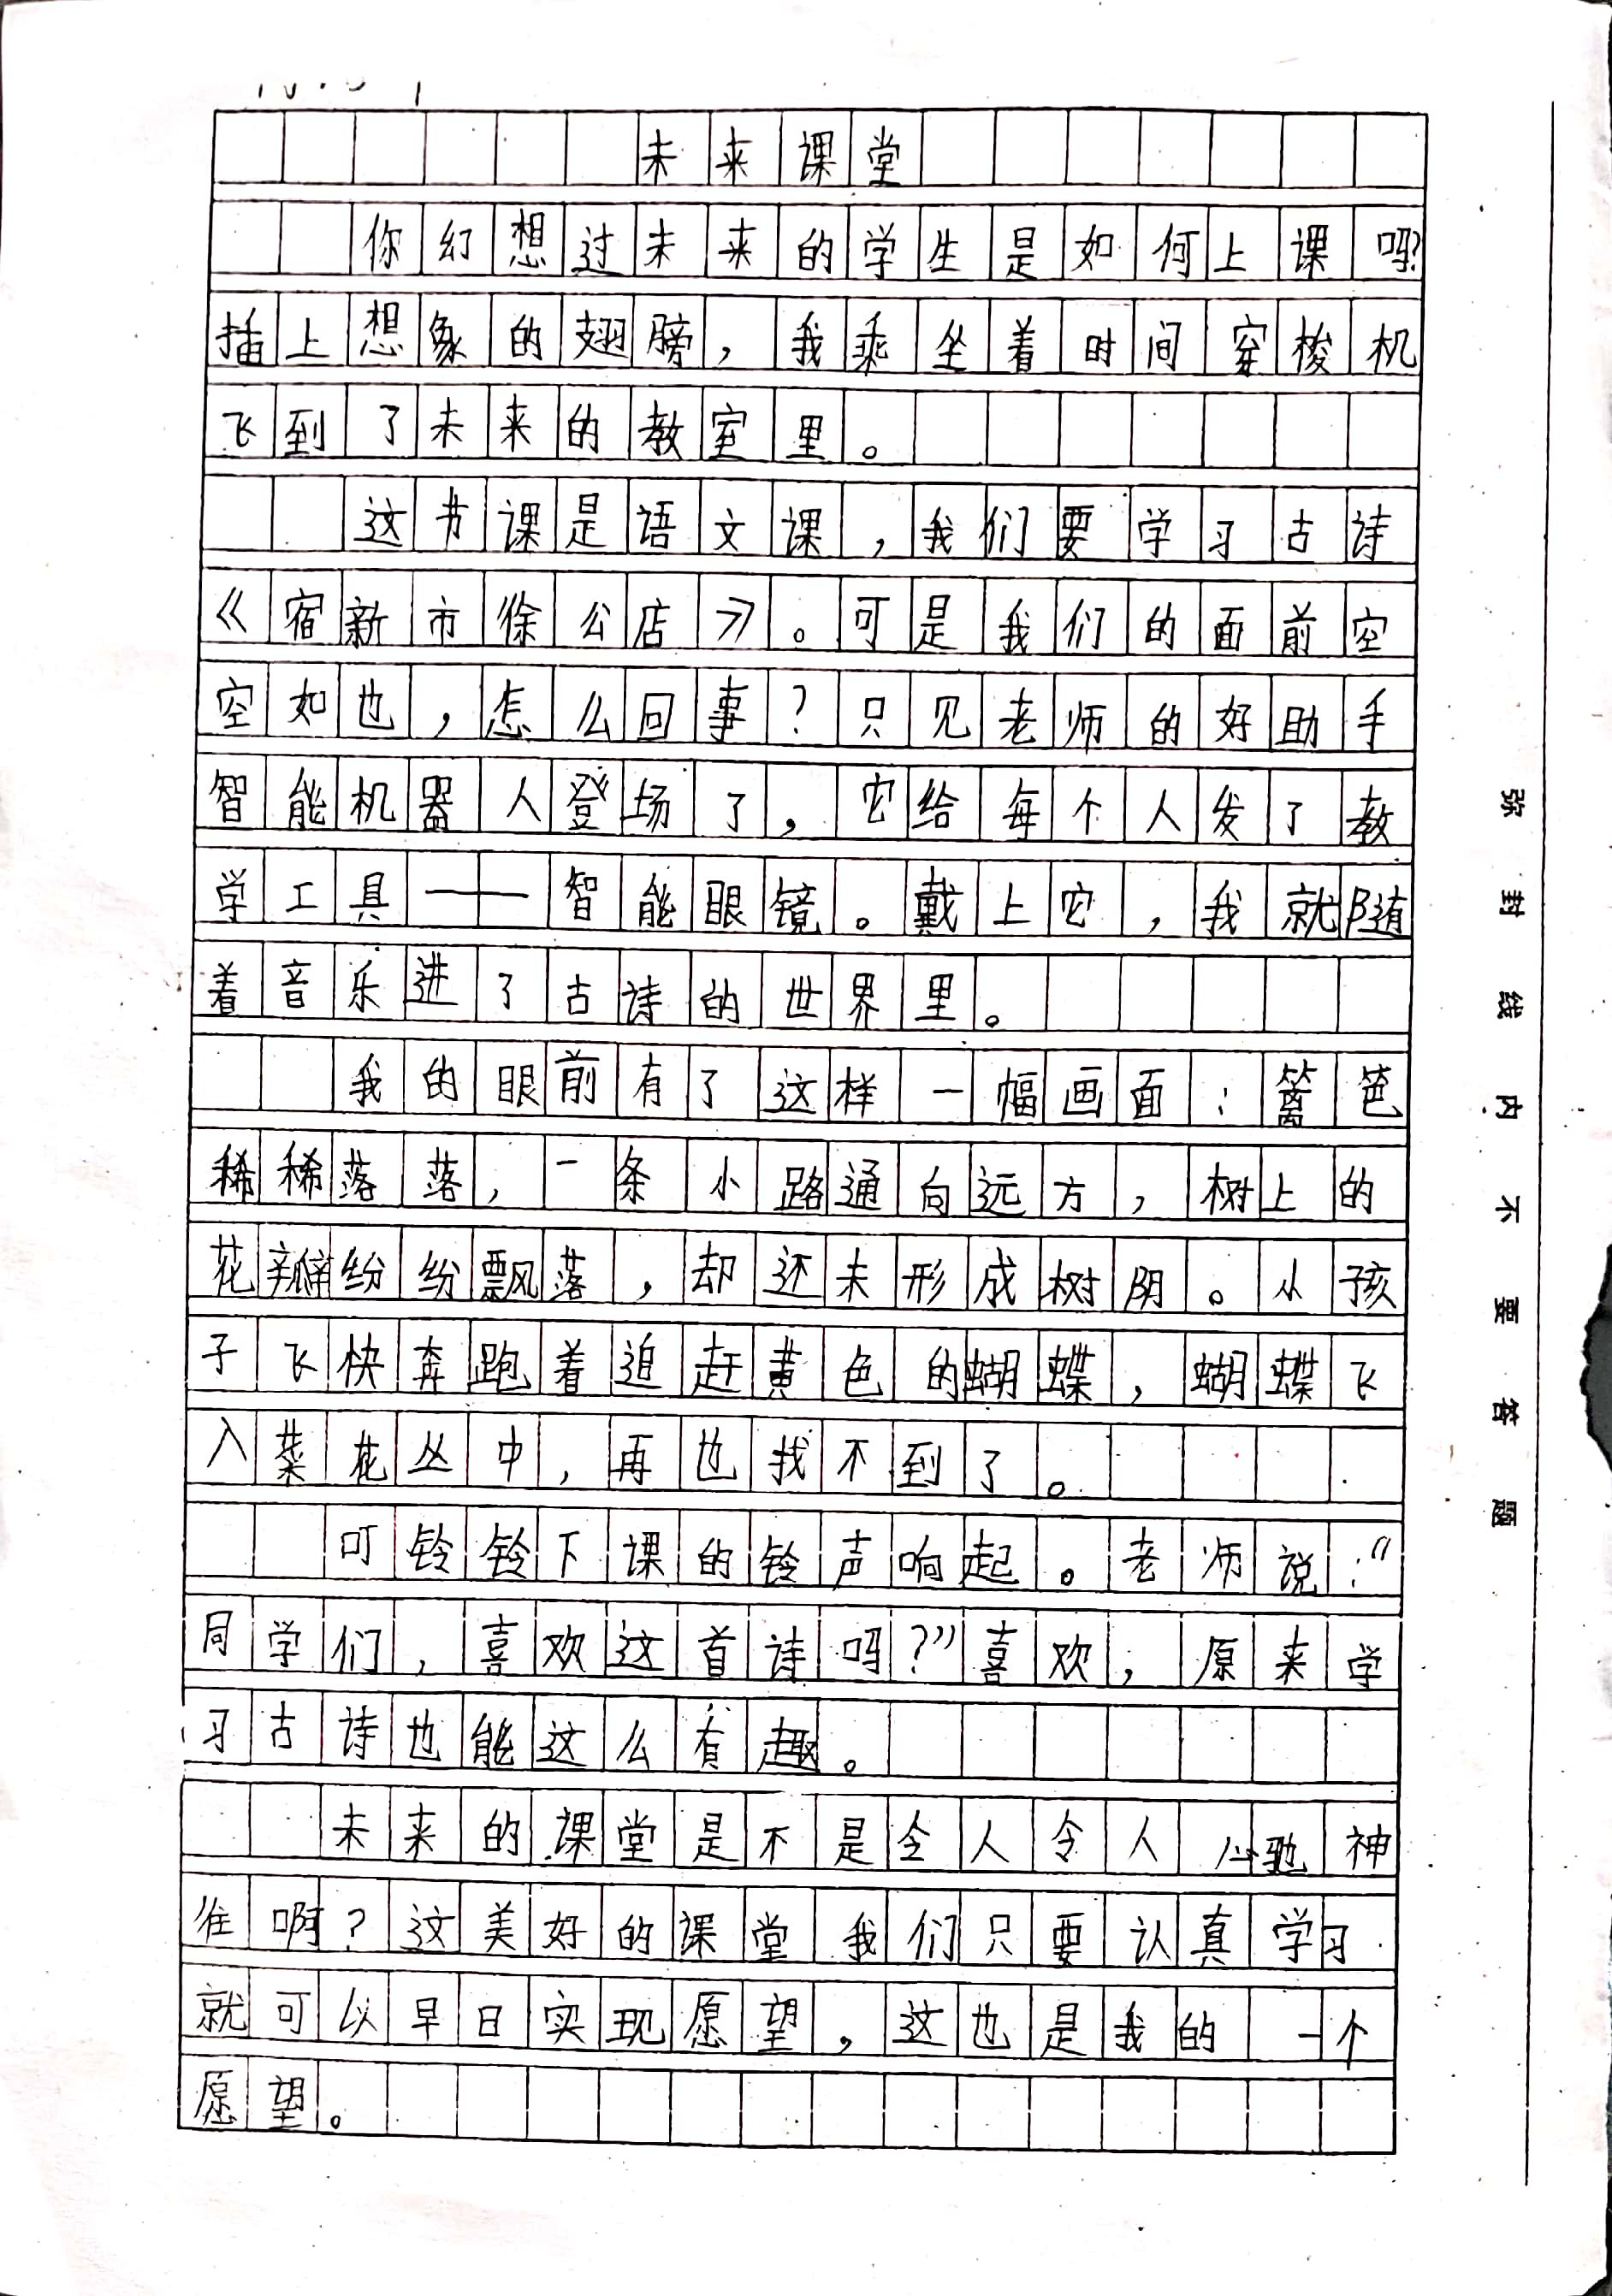 未来课堂
你幻想过未来的学生是如何上课吗?
插上想象的翅膀，我乘坐着时间穿梭机
飞到了未来的教室里。
这节课是语文课，我们要学习古诗
《宿新市徐公店》。可是我们的面前空
空如也，怎么回事？只见老师的好助手
智能机器人登场了，它给每个人发了教
学工具——智能眼镜。戴上它，我就随
着音乐进了古诗的世界里。
我的眼前有了这样一幅画面：篱笆
稀稀落落，一条小路通向远方，树上的
花瓣纷纷飘落，却还未形成树阴。小孩
子飞快奔跑着追赶黄色的蝴蝶，蝴蝶飞
入菜花丛中，再也找不到了。
叮铃铃下课的铃声响起。老师说：“
同学们，喜欢这首诗吗？”喜欢，原来学
习古诗也能这么有趣。
未来的课堂是不是令人令人心驰神
往啊？这美好的课堂我们只要认真学习
就可以早日实现愿望，这也是我的一个
愿望。
弥封线内不要答题